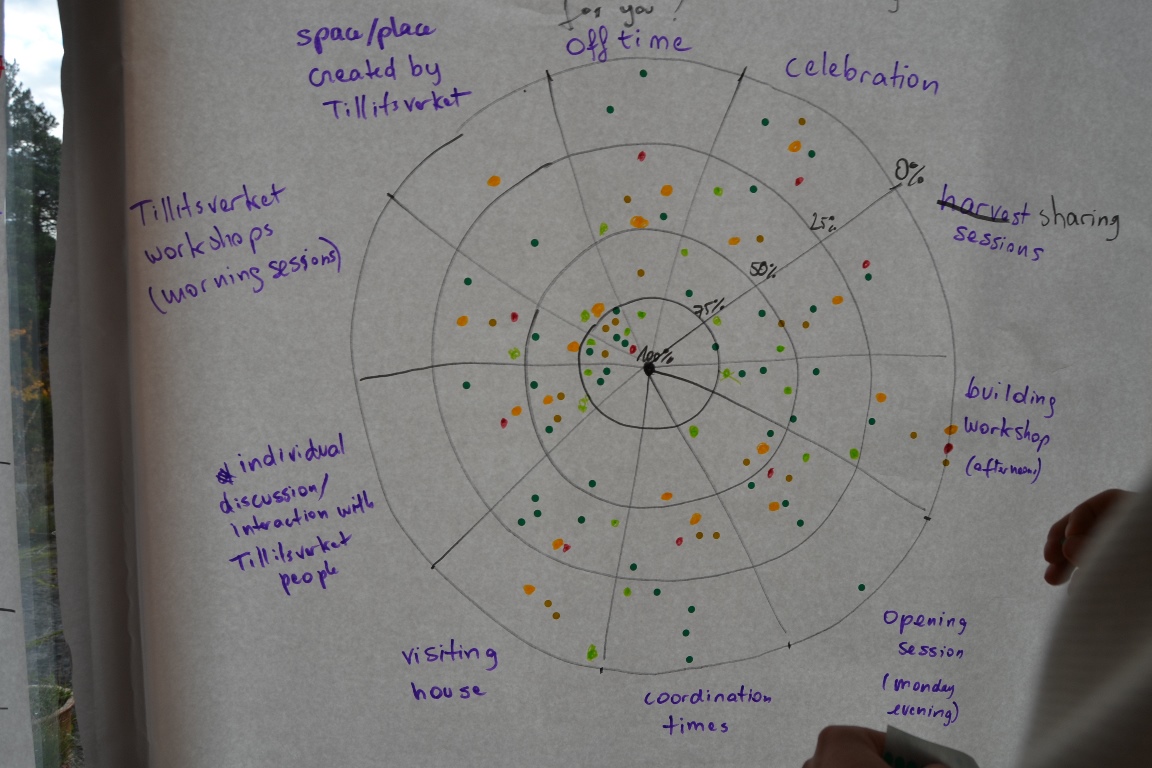 for you?
Off time
celebration
0%
25%
50%
75%
100%
harvest sharing
sessions
building
workshop
(afternoon)
Opening
session
(monday
evening)
coordination
times
visiting
house
individual
discussion/
interaction with
Tillitsverket
people
Tillitsverket
workshops
(morning sessions)
space/place
created by
Tillitsverket